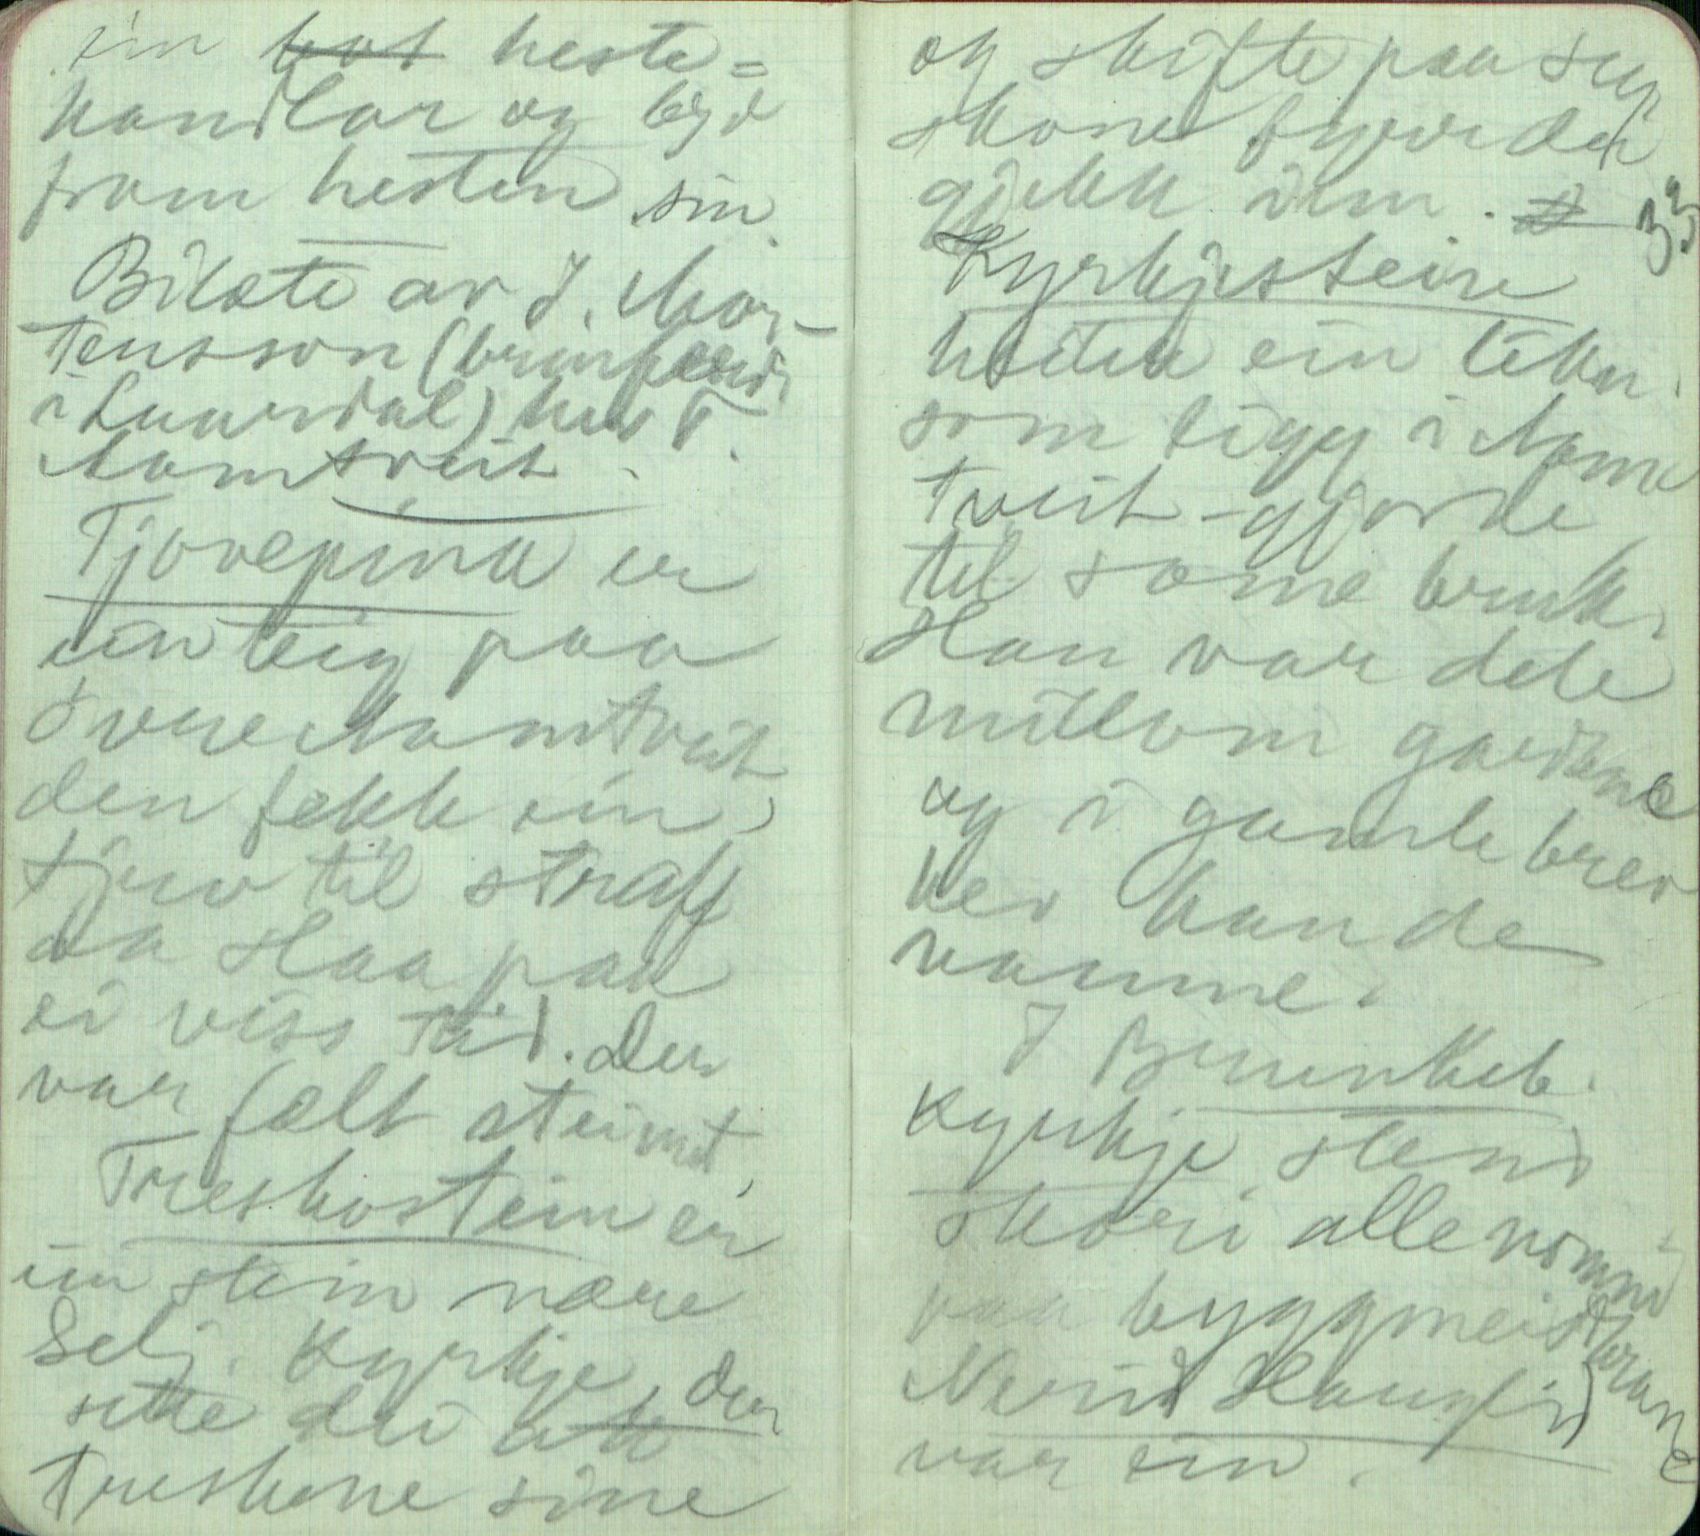 ein hot heste=
handlar og byd
fram hesten sin.
Bilete av J. Mor-
tensson (brurferd
i Laurdal) hev T.
Momtveit.
Tjovepina er
ein teig paa
øvre Momtveit
den fekk ein
tjuv til straff
aa slaa paa
ei viss tid. Der
var fælt steinut,
Treskostein er
ein stein nære
Selj. Kyrkje, der
sette dei att
treskone sine
og skifte paa seg
skone fyrr dei
gjekk inn. 33
Kyrkjesteine
heiter ein tekn
som ligg i Mom
tveit-gjorde
til same bruk.
Han var dele
millom gardane
og i gamle brev
hev han de
namne.
I Brunkeb.
Kyrkje stend
skori alle nomni
paa byggmeistarane
Nerid Haugl..
var ein.